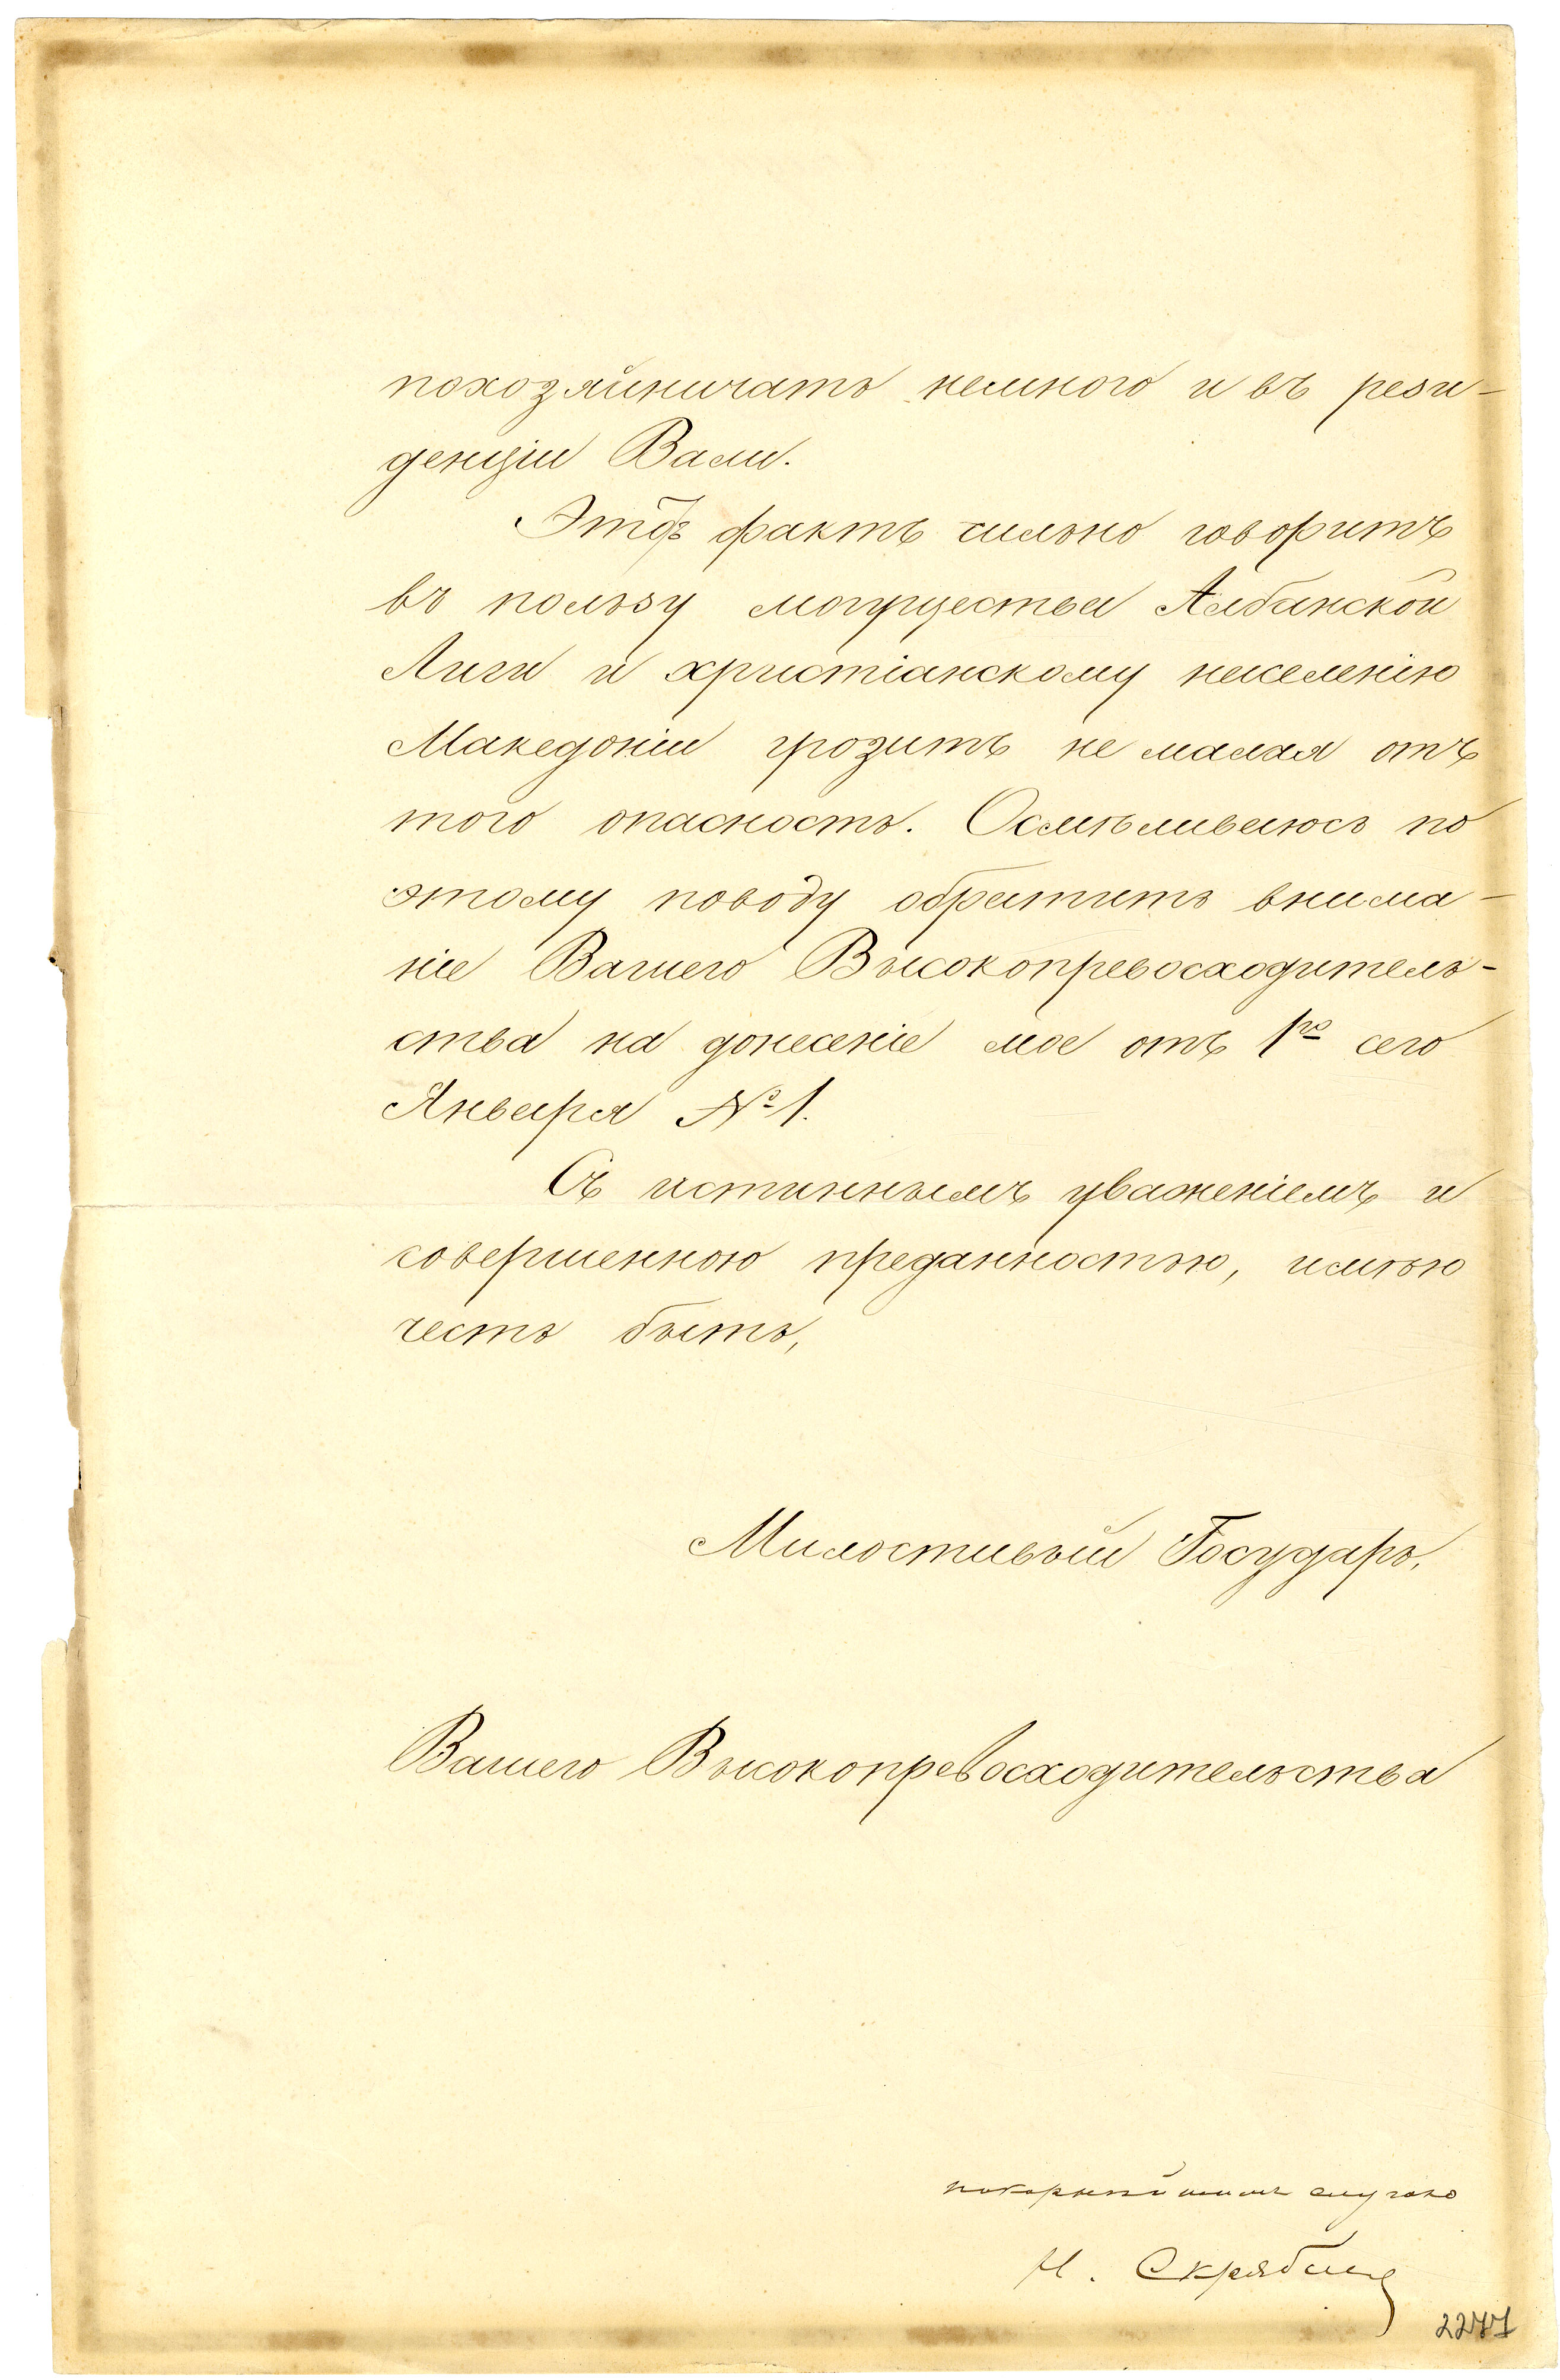 похозяйничать немного и въ рези-
денціи Вали.
Этотъ фактъ сильно говоритъ
въ пользу могущества Албанской
Лиги и христіанскому населенію
Македоніи грозитъ не малая отъ
того опасность. Осмѣливаюсь по
этому поводу обратить внима-
ніе Вашего Высокопревосходитель-
ства на донесеніе мое отъ 1го сего
Января № 1.
Съ истиннымъ уваженіемъ и
совершенною преданностью, имѣю
честь быть,
Милостивый Государь,
Вашего Высокопревосходительства
покорнѣйшимъ слугою
Н. Скрябинъ